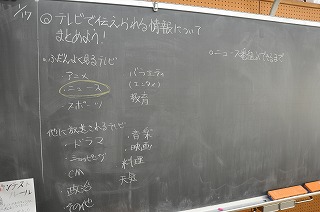 1/17
◎テレビで伝えられる情報について
まとめよう!
○ふだんよく見るテレビ
アニメ
・ニュース
・スポーツ
バラエティ
(エンタメ)
教育
他に放送されるテレビ
・ドラマ
・ショッピング
CM
・政治
・その他
・音楽
・映画
料理
天気
○ニュース番組ができるまで